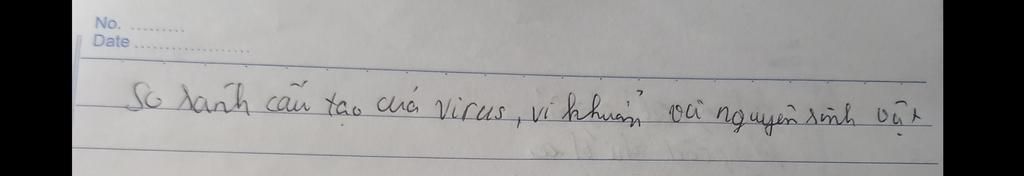 No. .........
Date ....................
So sánh cấu tạo của virus, vi khuẩn và nguyên sinh vật